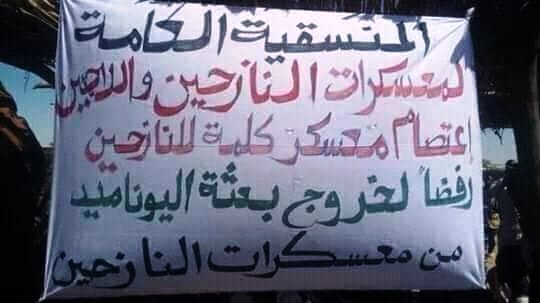 المنسقية العامة
لمعسكرات النازحين واللاجين
اعتصام معسكر كلمة للنازحين
رفضاً لخروج بعثة اليوناميد
من معسكرات النازحين